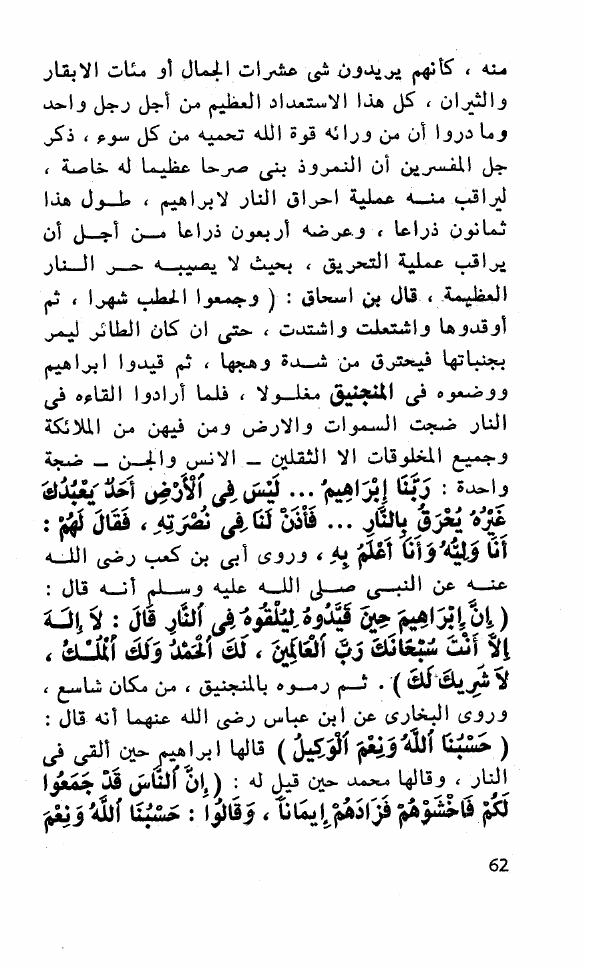 منه ، كأنهم يريدون شى عشرات الجمال أو مئات الابقار
والثيران ، كل هذا الاستعداد العظيم من أجل رجل واحد
وما دروا أن من ورائه قوة الله تحميه من كل سوء ، ذكر
جل المفسرين أن النمروذ بنى صرحا عظيما له خاصة ،
ليراقب منه عملية احراق النار لابراهيم ، طول هذا
ثمانون ذراعا ، وعرضه أربعون ذراعا من أجل أن
يراقب عملية التحريق ، بحيث لا يصيبه حر النار
العظيمة . قال بن اسحاق : ( وجمعوا الحطب شهرا ، ثم
أوقدوها واشتعلت واشتدت ، حتى ان كان الطائر ليمر
بجنباتها فيحترق من شدة وهجها ، ثم قيدوا ابراهيم
ووضعوه فى المنجنيق مغلولا ، فلما أرادوا القاءه فى
النار ضجت السموات والارض ومن فيهن من الملائكة
وجميع المخلوقات الا الثقلين – الانس والجن – ضجة
واحدة : رَبَّنَا إِبْرَاهِيمُ ... لَيْسَ فِى ٱلْأَرْضِ أَحَدٌ يَعْبُدُكَ
غَيْرُهُ يُحْرَقُ بِالنَّارِ ... فَأْذَنْ لَنَا فِى نُصْرَتِهِ ، فَقَالَ لَهُمْ :
أَنَا وَلِيُّهُ وَأَنَا أَعْلَمُ بِهِ ، وروى أبى بن كعب رضى الله
عنه عن النبى صلى الله عليه وسلم أنه قال :
( إِنَّ إِبْرَاهِيمَ حِينَ قَيَّدُوهُ لِيُلْقُوهُ فِى ٱلنَّارِ قَالَ : لَا إِلَهَ
إِلَّا أَنْتَ سُبْحَانَكَ رَبَّ ٱلْعَالَمِينَ ، لَكَ ٱلْحَمْدُ وَلَكَ ٱلْمُلْكُ ،
لَا شَرِيكَ لَكَ ) . ثم رموه بالمنجنيق ، من مكان شاسع ،
وروى البخارى عن ابن عباس رضى الله عنهما أنه قال :
( حَسْبُنَا ٱللَّهُ وَنِعْمَ ٱلْوَكِيلُ ) قالها ابراهيم حين ألقى فى
النار ، وقالها محمد حين قيل له : ( إِنَّ ٱلنَّاسَ قَدْ جَمَعُوا
لَكُمْ فَاخْشَوْهُمْ فَزَادَهُمْ إِيمَاناً ، وَقَالُوا : حَسْبُنَا ٱللَّهُ وَنِعْمَ
62